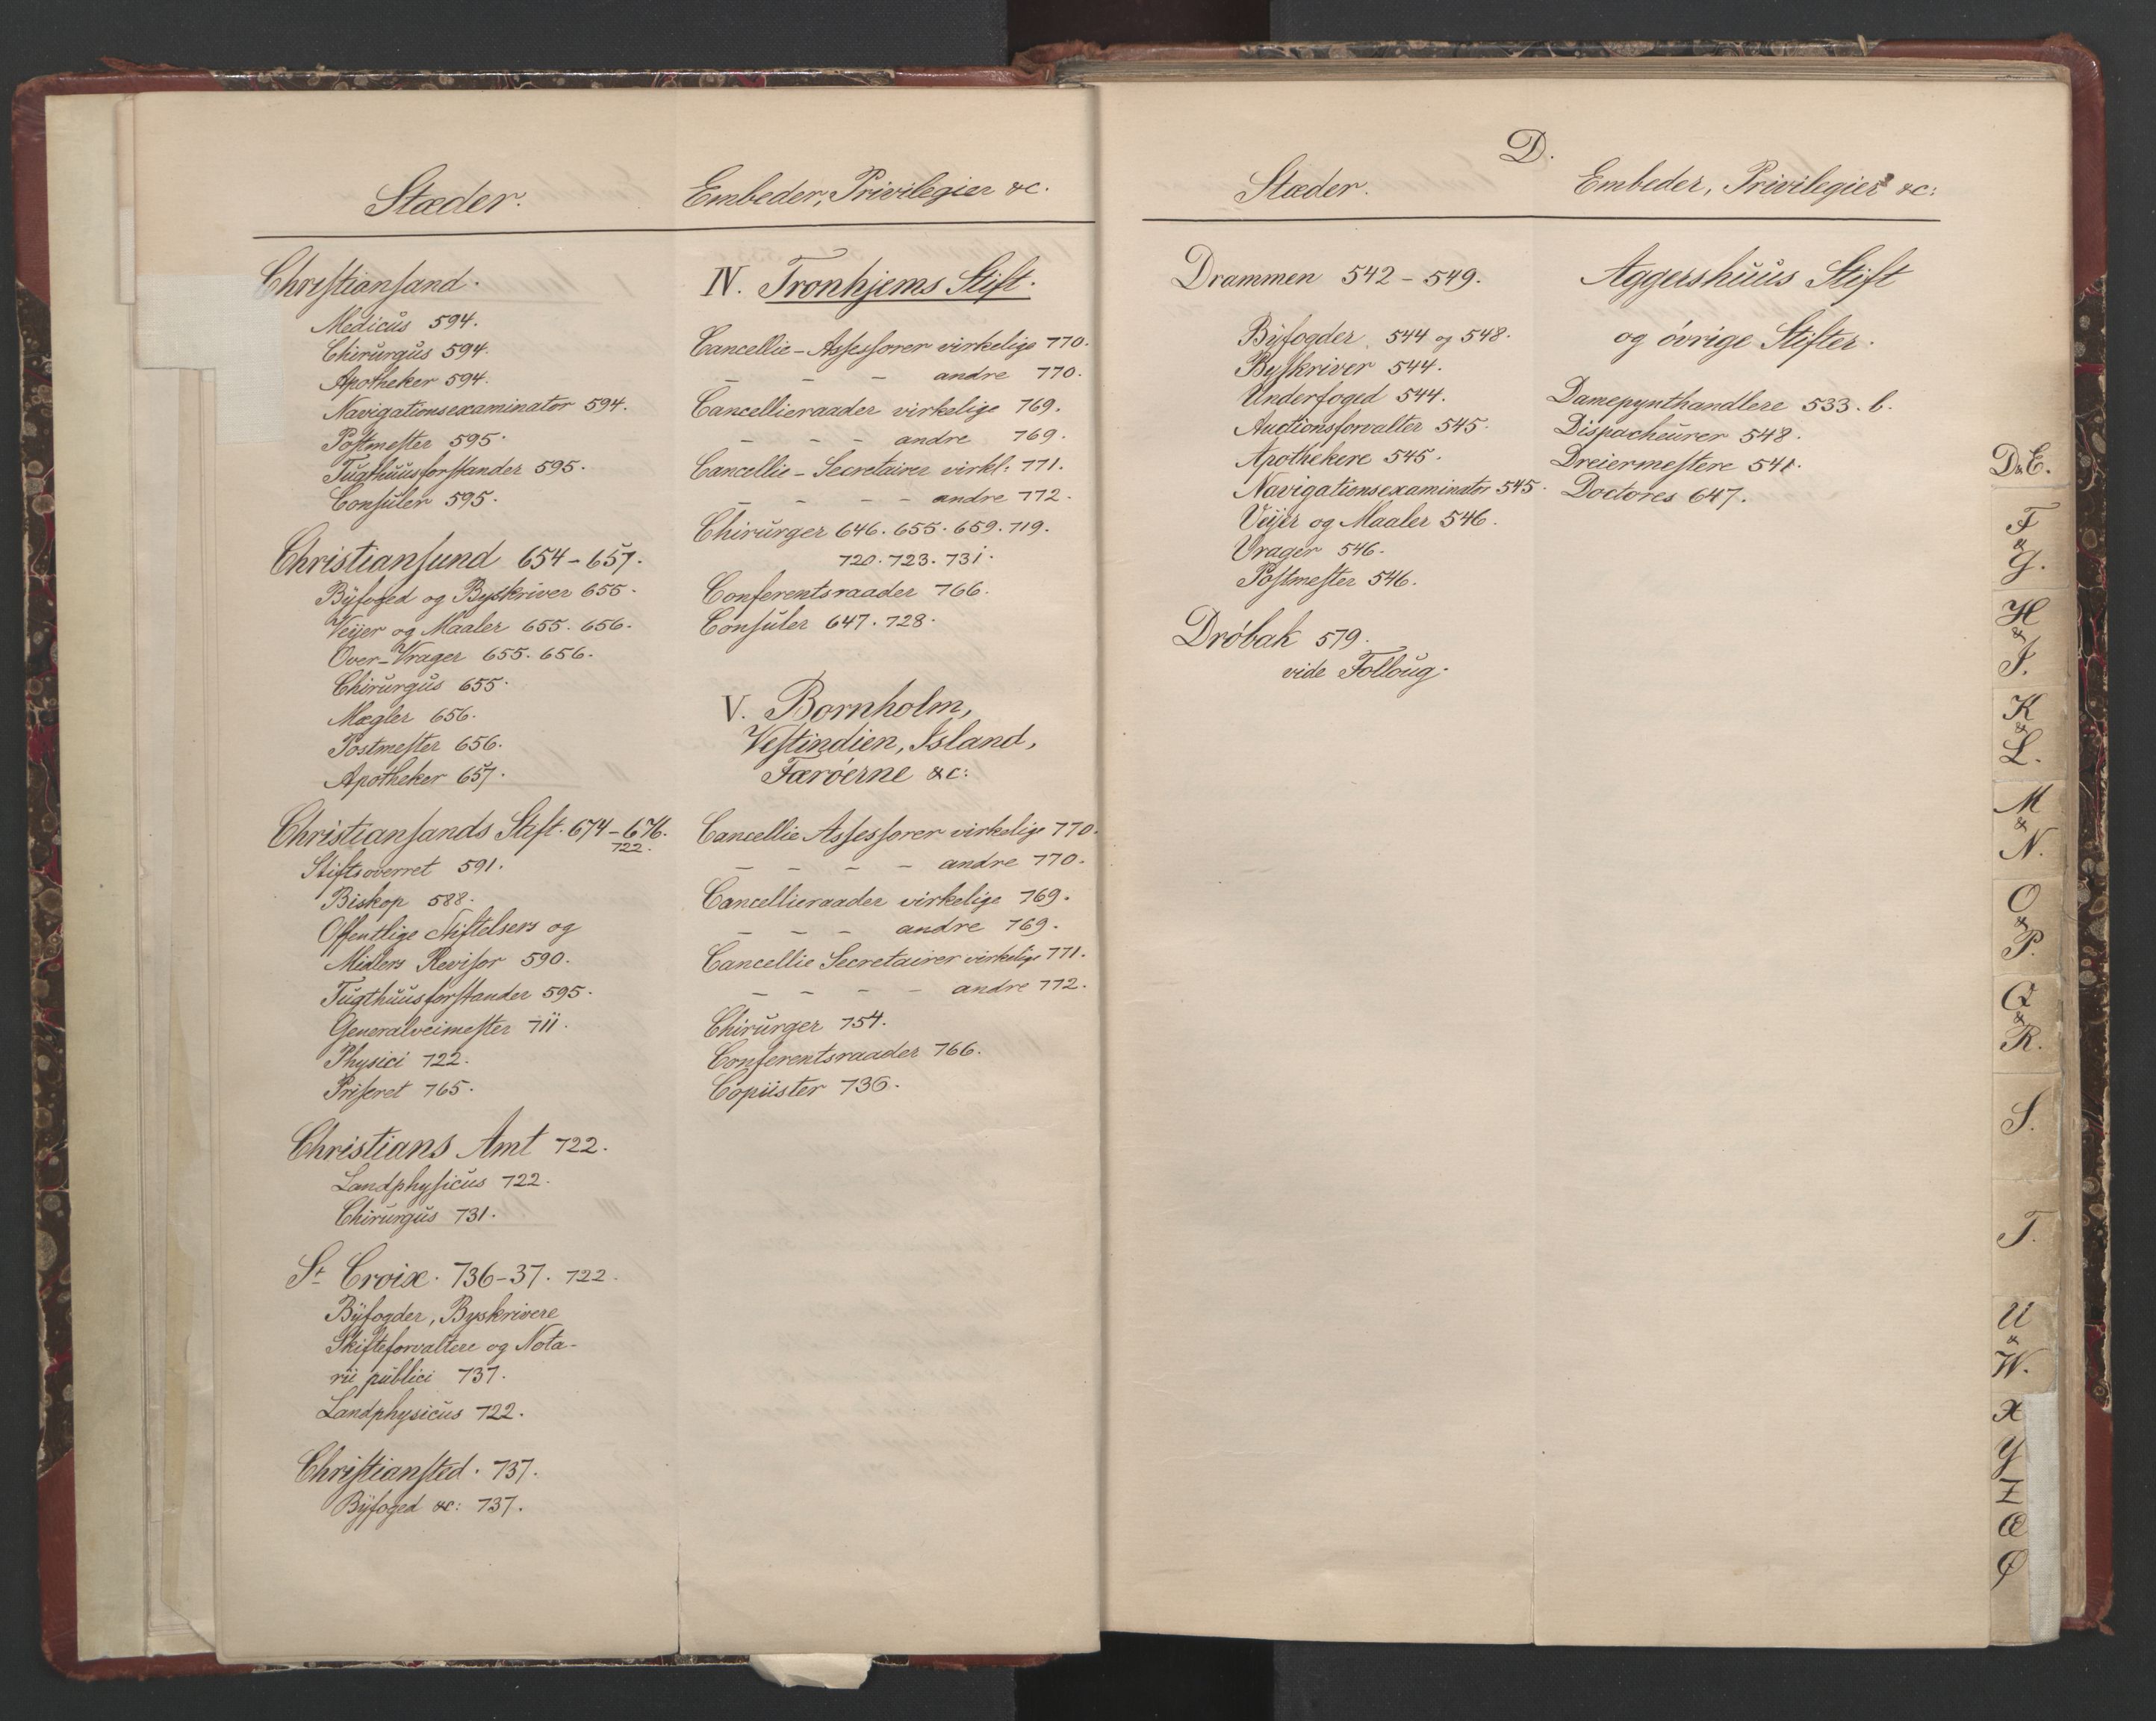 Stæder.
Christiansand.
Medicus 594.
Chirurgus 594.
Apotheker 594.
Navigationsexaminator 594.
Postmester 595.
Tugthuusforstander 595.
Consuler 595.
Christiansund 654-657.
Byfoged og Byskriver 655.
Veijer og Maaler 655. 656.
Over-Vrager 655. 656.
Chirurgus 655.
Mægler 656.
Postmester 656.
Apotheker 657.
Christiansands Stift. 674-676.
722.
Stiftsoverret 591.
Biskop 588.
Offentlige Stiftelsers og
Midlers Revisor 590.
Tugthuusforstander 595.
Generalveimester 711.
Physici 722.
Priseret 765.
Christians Amt 722.
Landphysicus 722.
Chirurgus 731.
St Croix. 736-37. 722.
Byfogder, Byskrivere
Skifteforvaltere og Nota-
rii publici 737.
Landphysicus 722.
Christiansted. 737.
Byfoged &c: 737.
Embeder, Privilegier &c.
IV. Tronhjems Stift.
Cancellie-Assessorer virkelige 770.
- - - andre 770.
Cancellieraader virkelige 769.
- - - andre 769.
Cancellie-Secretairer virkl. 771.
- - - - andre 772.
Chirurger 646. 655. 659. 719.
720. 723. 731.
Conferentsraader 766.
Consuler 647. 728.
V. Bornholm,
Vestindien, Island,
Færöerne &c:
Cancellie Assessorer virkelige 770.
- - - - andre 770.
Cancellieraader virkelige 769.
- - - andre 769.
Cancellie Secretairer virkelige 771.
- - - - andre 772.
Chirurger 754.
Conferentsraader 766.
Copiister 736.
D.
Stæder.
Drammen 542-549.
Byfogder 544 og 548.
Byskriver 544.
Underfoged 544.
Auctionsforvalter 545.
Apothekere 545.
Navigationsexaminator 545.
Veijer og Maaler 546.
Vrager 546.
Postmester 546.
Dröbak 579.
vide Folloug.
Embeder, Privilegier &c:
Aggershuus Stift
og övrige Stifter.
Damepynthandlere 533. b.
Dispacheurer 548.
Dreiermestere 541.
Doctores 647.
D&E.
F
&
G.
H
&
I.
K
&
L.
M
&
N.
O
&
P.
Q
&
R.
S.
T.
U
&
W.
X
Y
Z
Æ
Ø